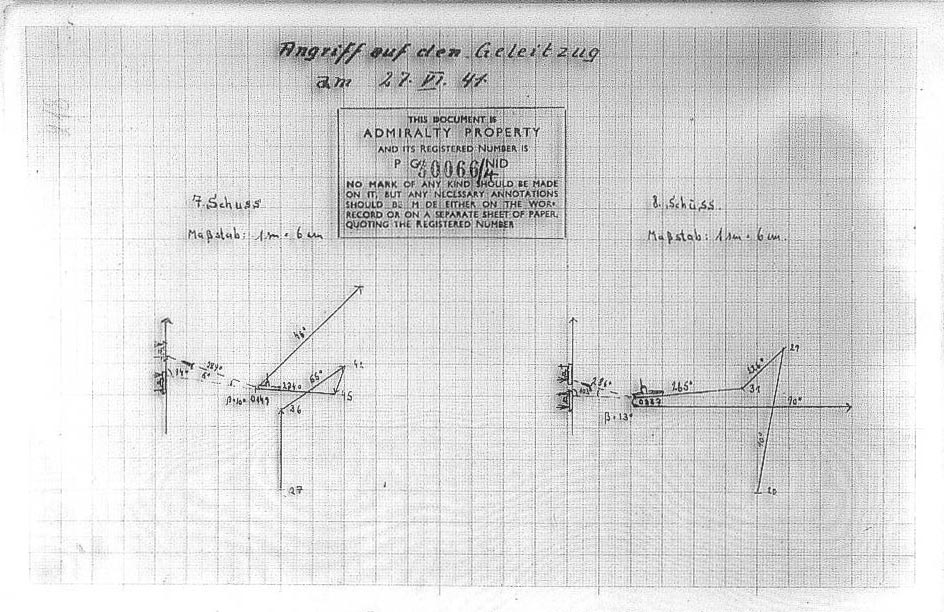 Angriff auf den Geleitzug
am 27. VI. 41.
THIS DOCUMENT IS
ADMIRALTY PROPERTY
AND ITS REGISTERED NUMBER IS
P G 30066/4 NID
NO MARK OF ANY KIND SHOULD BE MADE
ON IT, BUT ANY NECESSARY ANNOTATIONS
SHOULD BE M DE EITHER ON THE WOR
RECORD OR ON A SEPARATE SHEET OF PAPER,
QUOTING THE REGISTERED NUMBER
7. Schuss
Maßstab: 1 sm = 6 cm
8. Schuss.
Maßstab: 1 sm = 6 cm.
46°
65°
42
45
β=10°
0149
26
27
29
31
265°
90°
β=13°
10°
20